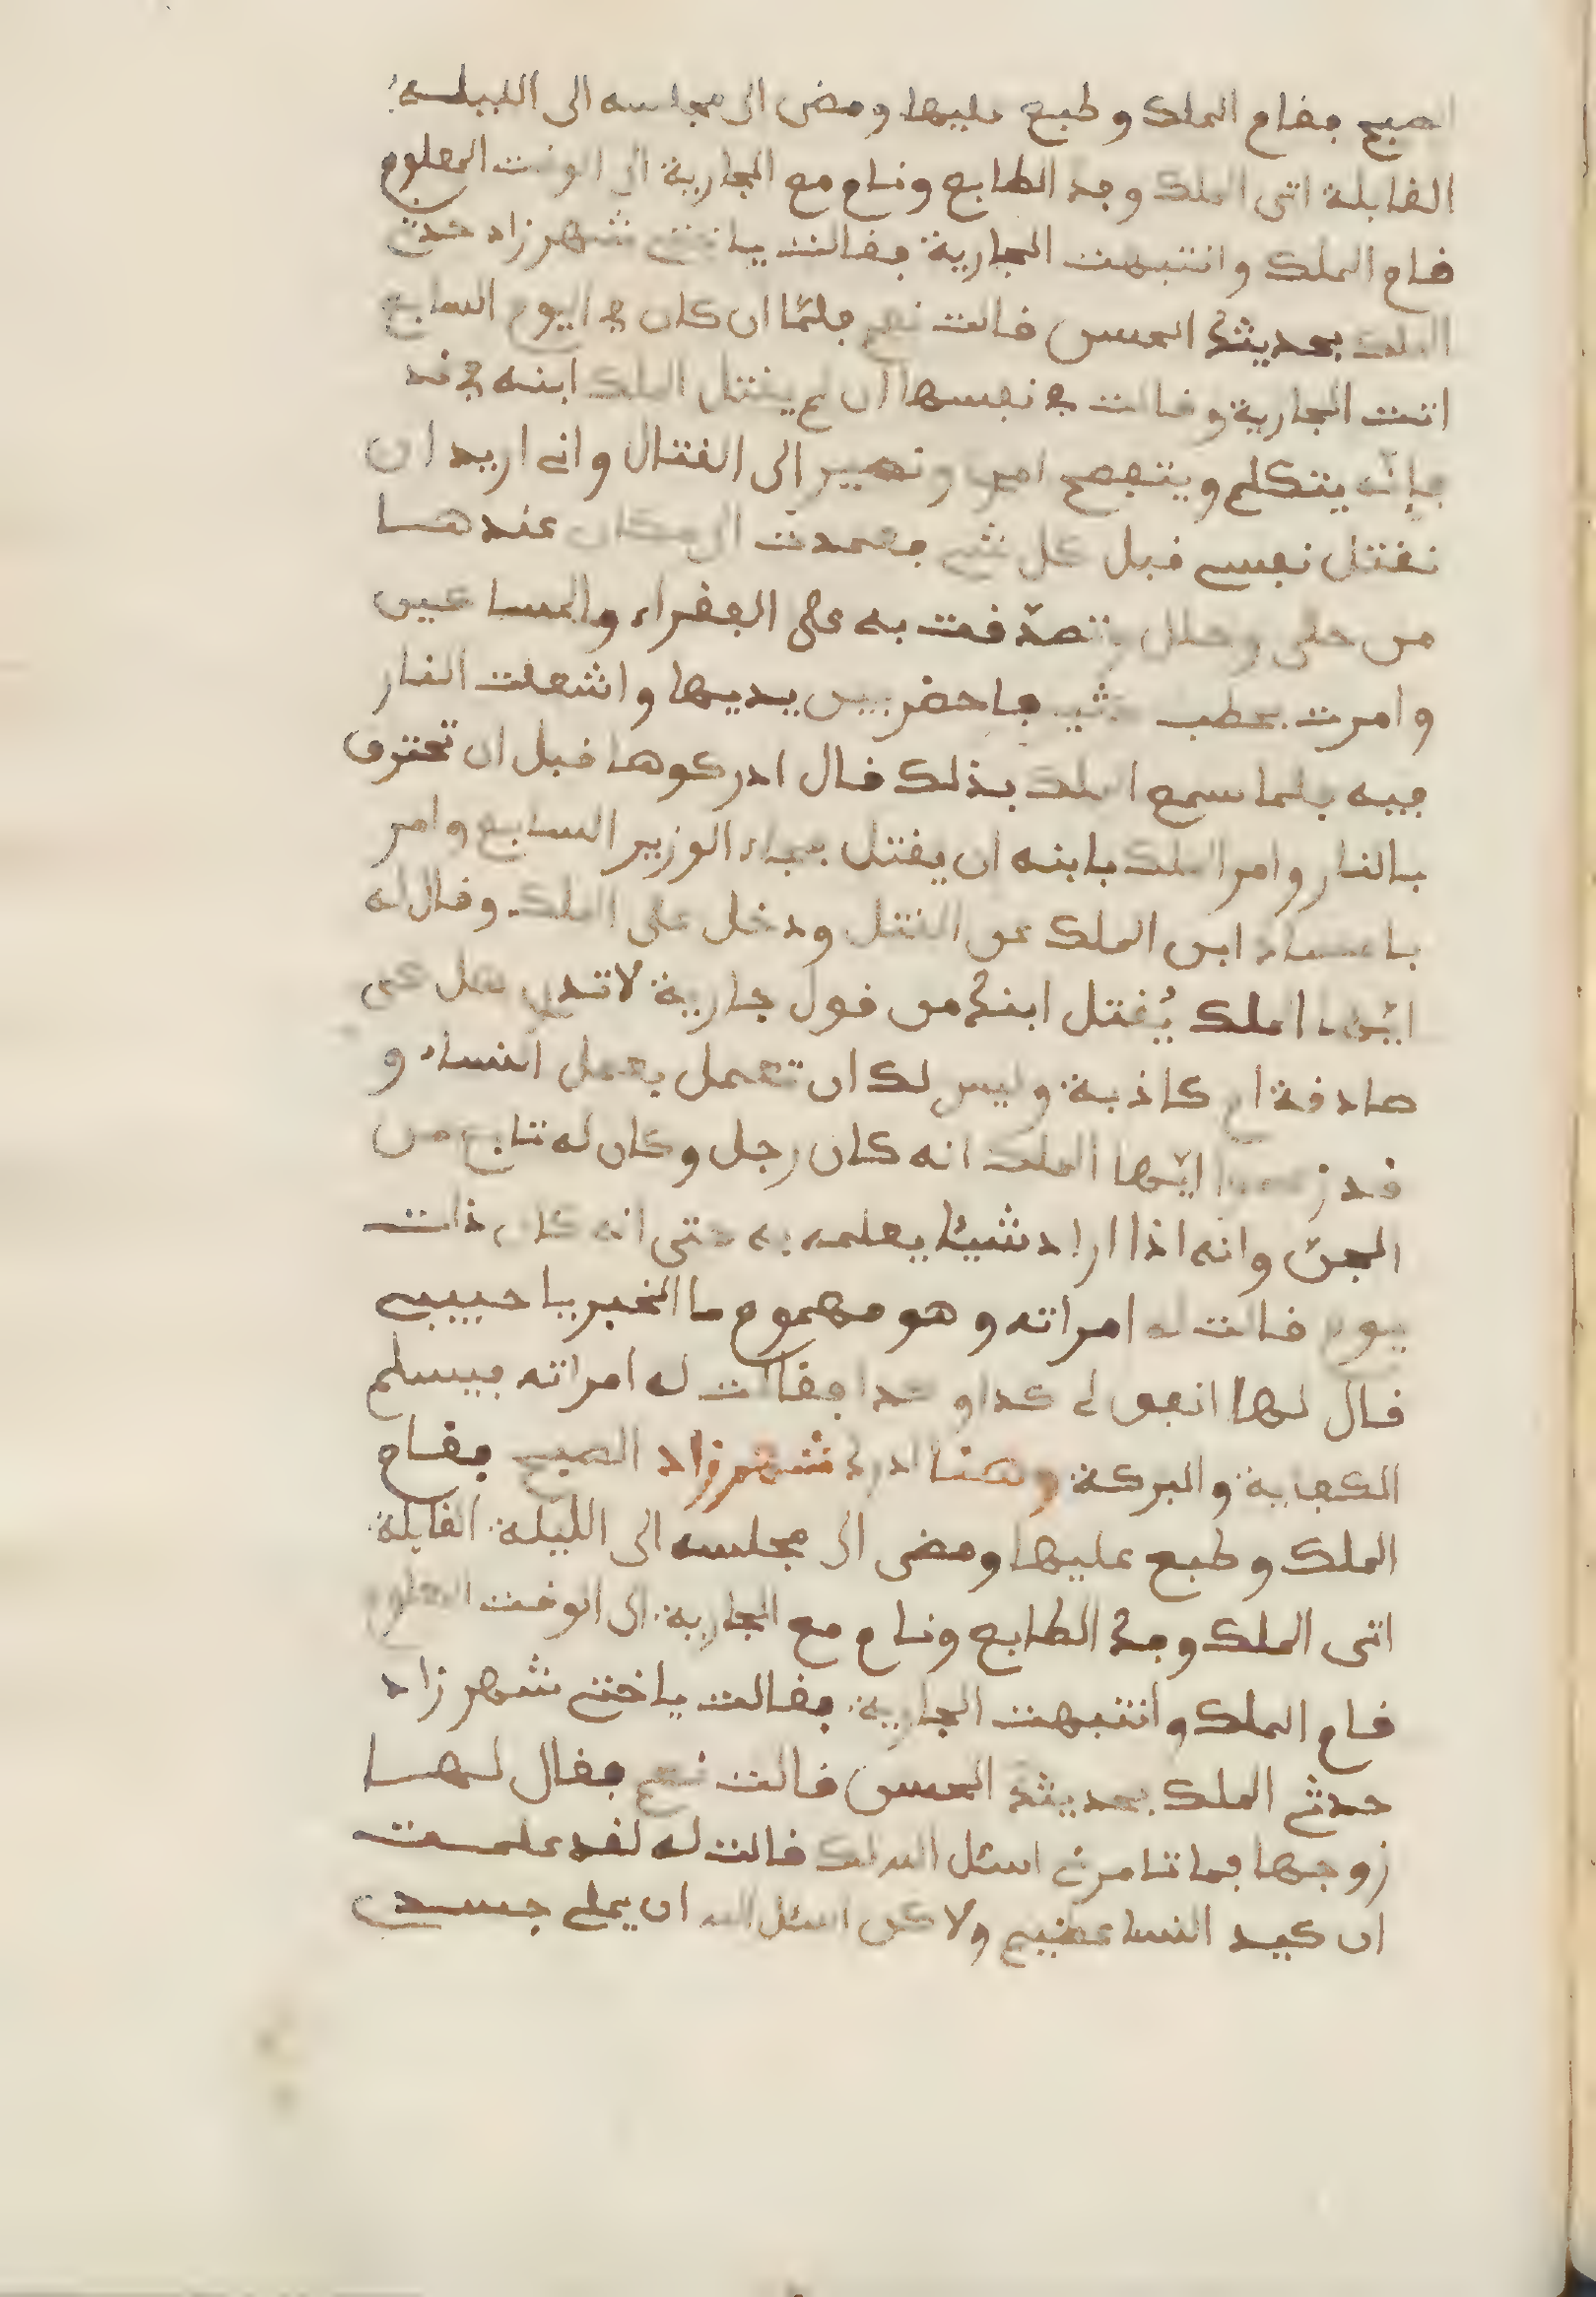 الصبح فقام الملك وطبع عليها ومضى الى مجلسه الى الليلـــه
القابلة اتى الملك وجد الطابع ونام مع الجارية الى الوقت المعلوم
قام الملك وانتبهت الجارية فقالت يا ختي شهرزاد حدث
الملك بحديثك الحسن قالت نعم فلمّا ان كان في اليوم السابع
اتت الجارية وقالت في نفسها ان لم يقتل الملك ابنه في غد
فإنّه يتكلم ويتفصح امري ونصير الى القتال واني اريد ان
نقتل نفسي قبل كل شي فعمدت الى مكان عندها
من حلى وحلل وتصدّقت به على الفقراء والمساكين
وامرت بحطب كثير فاحضر بين يديها واشعلت النار
فيه فلما سمع الملك بذلك قال ادركوها قبل ان تحترق
بالنار وامر الملك بابنه ان يقتل فجاء الوزير السابع وامر
بامساك ابن الملك عن القتل ودخل على الملك وقال له
ايّها الملك يُقتل ابنك من قول جارية لا تدري هل هي
صادقة ام كاذبة وليس لك ان تعمل بعمل النساء و
قد زعموا ايّها الملك انه كان رجل وكان له تابع من
الجنّ وانه اذا اراد شيئا يعلمه به حتى انه كان ذات
يوم قالت له امراته وهو مهموم ما الخبر يا حبيبي
قال لها اتفق لي كذا وكذا فقالت له امراته فيسلم
الكفاية والبركة وهنا ادرك شهرزاد الصبح فقام
الملك وطبع عليها ومضى الى مجلسه الى الليلة القابلة
اتى الملك وجد الطابع ونام مع الجارية الى الوقت المعلوم
قام الملك وانتبهت الجارية فقالت يا ختي شهرزاد
حدث الملك بحديثك الحسن قالت نعم فقال لها
زوجها فما تامرني اسئل الله لك قالت له لقد علمت
ان كيد النسا عظيم ولاكن اسئل الله ان يملي جسدي